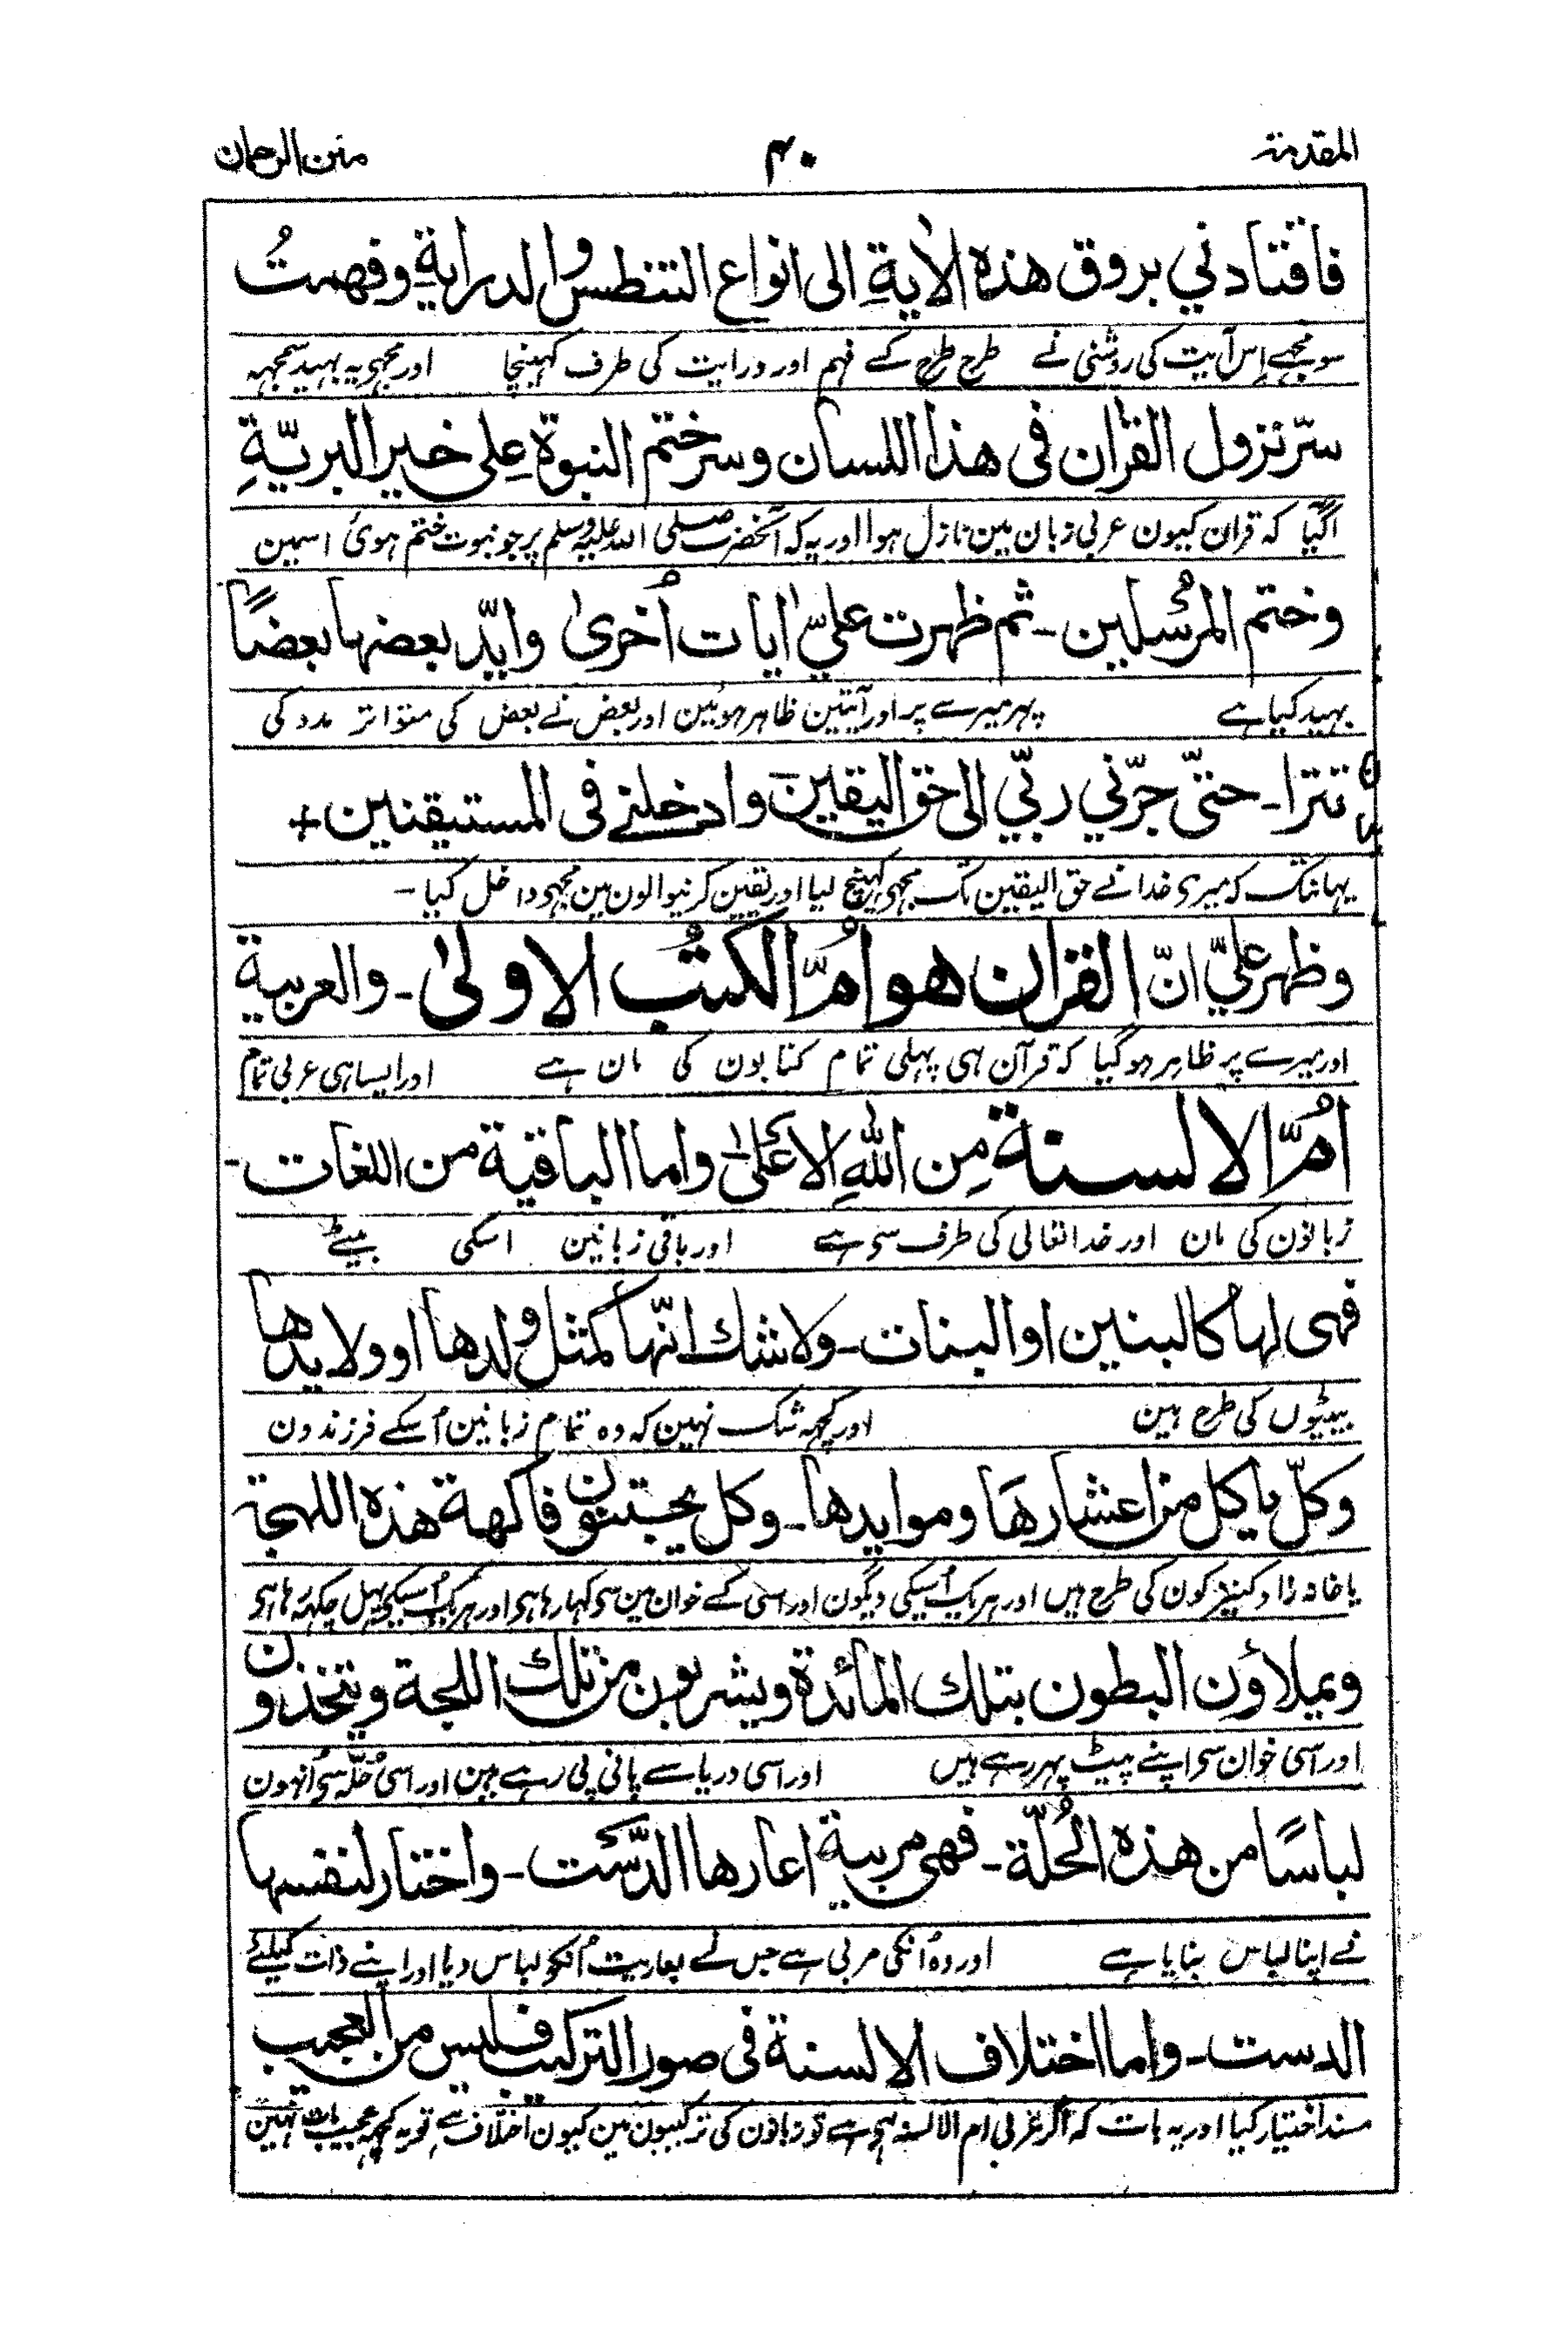 المقدمة ۴۰ منن الرحمان
فاقتادني بروق هذه الاٰية الى انواع التنطس والدراية وفهمتُ
سو مجھے اِس آیت کی روشنی نے طرح طرح کے فہم اور درایت کی طرف کھینچا اور مجھی یہ بہید سمجہہ
سرّ نزول القراٰن فى هذا اللسان وسر ختم النبوة على خير البريّةِ
آگیا کہ قرآن کیون عربی زبان مین نازل ہوا اور یہ کہ آنخضرت صلی اللہ علیہ وسلم پر جو نبوت ختم ہوئ اسمین
وختم المرسلين ـ ثم ظهرت عليّ اٰيات اُخرىٰ وايّد بعضها بعضًا
بہید کیا ہے پہر میرے پر اور آیتین ظاہر ہوئین اور بعض نے بعض کی متواتر مدد کی
تترا ـ حتىّ جرّني ربّي الى حق اليقين وادخلنے فى المستيقنين +
یہانتک کہ میری خدا نے حق الیقین تک مجھی کھینچ لیا اور یقین کرنیوالون مین مجھی داخل کیا ـ
وظهر عليّ انّ القراٰن هو اُمّ الكتُب الاولىٰ ـ والعربية
اور میرے پر ظاہر ہو گیا کہ قرآن ہی پہلی تمام کتابون کی مان ہے اور ایسا ہی عربی تمام
اُمّ الالسنة مِن اللهِ الاعلىٰ واما الباقية من اللغات ـ
زبانون کی مان اور خدا تعالی کی طرف سی ہے اور باقی زبانین اسکی بیٹے
فهى لها كالبنين او البنات ـ ولا شك انّها كمثل ولدها او ولايدها
بیٹیوں کی طرح ہین اور کچہہ شک نہین کہ وہ تمام زبانین اُسکے فرزندون
وكلّ ياكل من اعشارهَا وموايدها ـ وكل يجتنون فاكهة هذه اللهجة
یا خانہ زاد کنیزکون کی طرح ہیں اور ہر یک اُسیکی دیگون اور اسی کے خوان مین سی کہا رہا ہی اور ہر یک اُسیکی پہل چکہہ رہا ہی
ويملاؤن البطون بتلك المائدة ويشربون من تلك اللجة ويتخذون
اور اسی خوان سی اپنے پیٹ بہر رہے ہیں اور اسی دریا سے پانی پی رہے ہین اور اسی حُلّہ سی اُنہون
لباسًا من هذه الحُلّة ـ فهى مربية اعارها الدّست ـ واختار لنفسها
نے اپنا لباس بنایا ہے اور وہ اُنکی مربی ہے جس نے بعاریت اُنکو لباس دیا اور اپنے ذات کیلئے
الدست ـ واما اختلاف الالسنة فى صور التركيب فليس من العجيب
مسند اختیار کیا اور یہ بات کہ اگر عربی ام الالسنہ ہی ہے تو زبانون کی ترکیبون مین کیون اختلاف ہے تو یہ کچہہ عجیب بات نہین